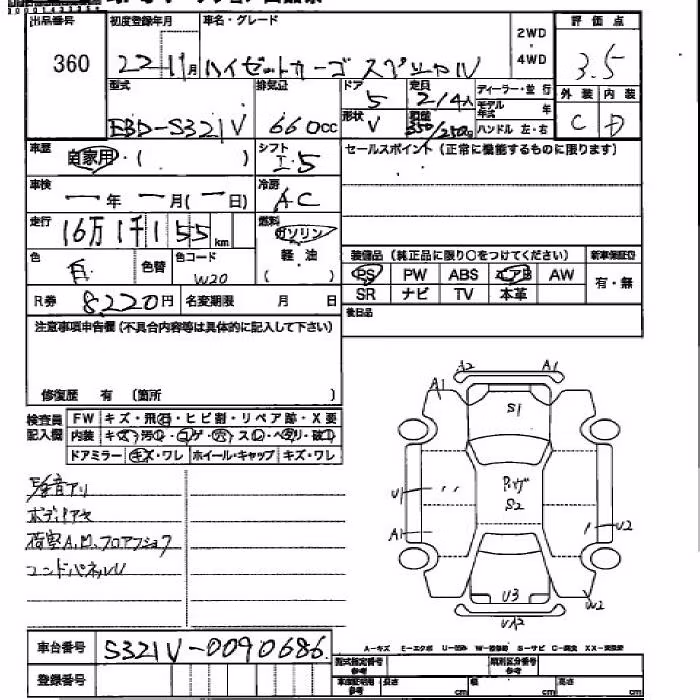 出品番号 初度登録年月 車名・グレード 2WD ・ 4WD 評価点
360 22-11月 ハイゼットカーゴ スペシャル 3.5
型式 排気量 ドア 定員 ディーラー・並行 外装 内装
EBD-S321V 660cc 5 2/4人 モデル年式 年 C D
形状 V 積載 350/250kg ハンドル 左・右
車歴 自家用・( ) シフト I.5 セールスポイント(正常に機能するものに限ります)
車検 ー年ー月(ー日) 冷房 AC
走行 16万1千155km 燃料 ガソリン
色 色替 色コード W20 軽・油 ( )
装備品(純正品に限り○をつけてください) 新車保証書
PS PW ABS エアB AW 有・無
SR ナビ TV 本革
R券 8220円 名変期限 月 日
後日品
注意事項申告欄(不具合内容等は具体的に記入して下さい)
修復歴 有 (箇所 )
検査員記入欄 FW キズ・飛石・ヒビ割・リペア跡・X要
内装 キズ・汚レ・コゲ・穴・スレ・ヘタリ・破レ
ドアミラー キズ・ワレ ホイール・キャップ キズ・ワレ
A2 A1
A1
S1
U1
S2
A1
U2
U3
W2
UA2
荷室A.M.フロアフショク
コンドパネルU
車台番号 S321V-0090686
登録番号
A-キズ E-エクボ S-サビ C-腐食
型式指定番号 参考 類別区分番号 参考
長さ cm 幅 cm 高さ cm